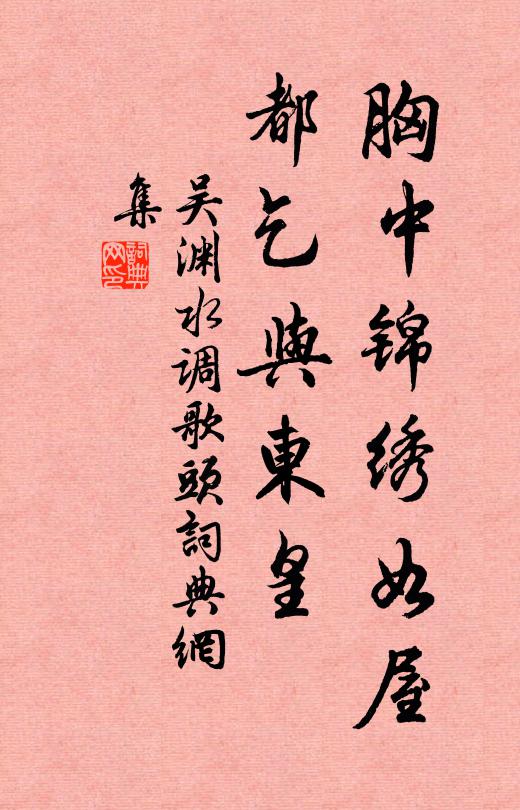 胸中锦绣如屋
都乞與東皇
吴渊水调歌頭詞典網
集
詞典网印